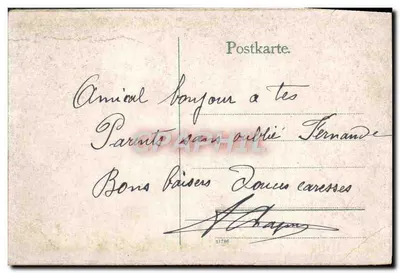 Postkarte.
Amical bonjour a tes
Parents sans oublié Fernande
Bons baisers Douces caresses